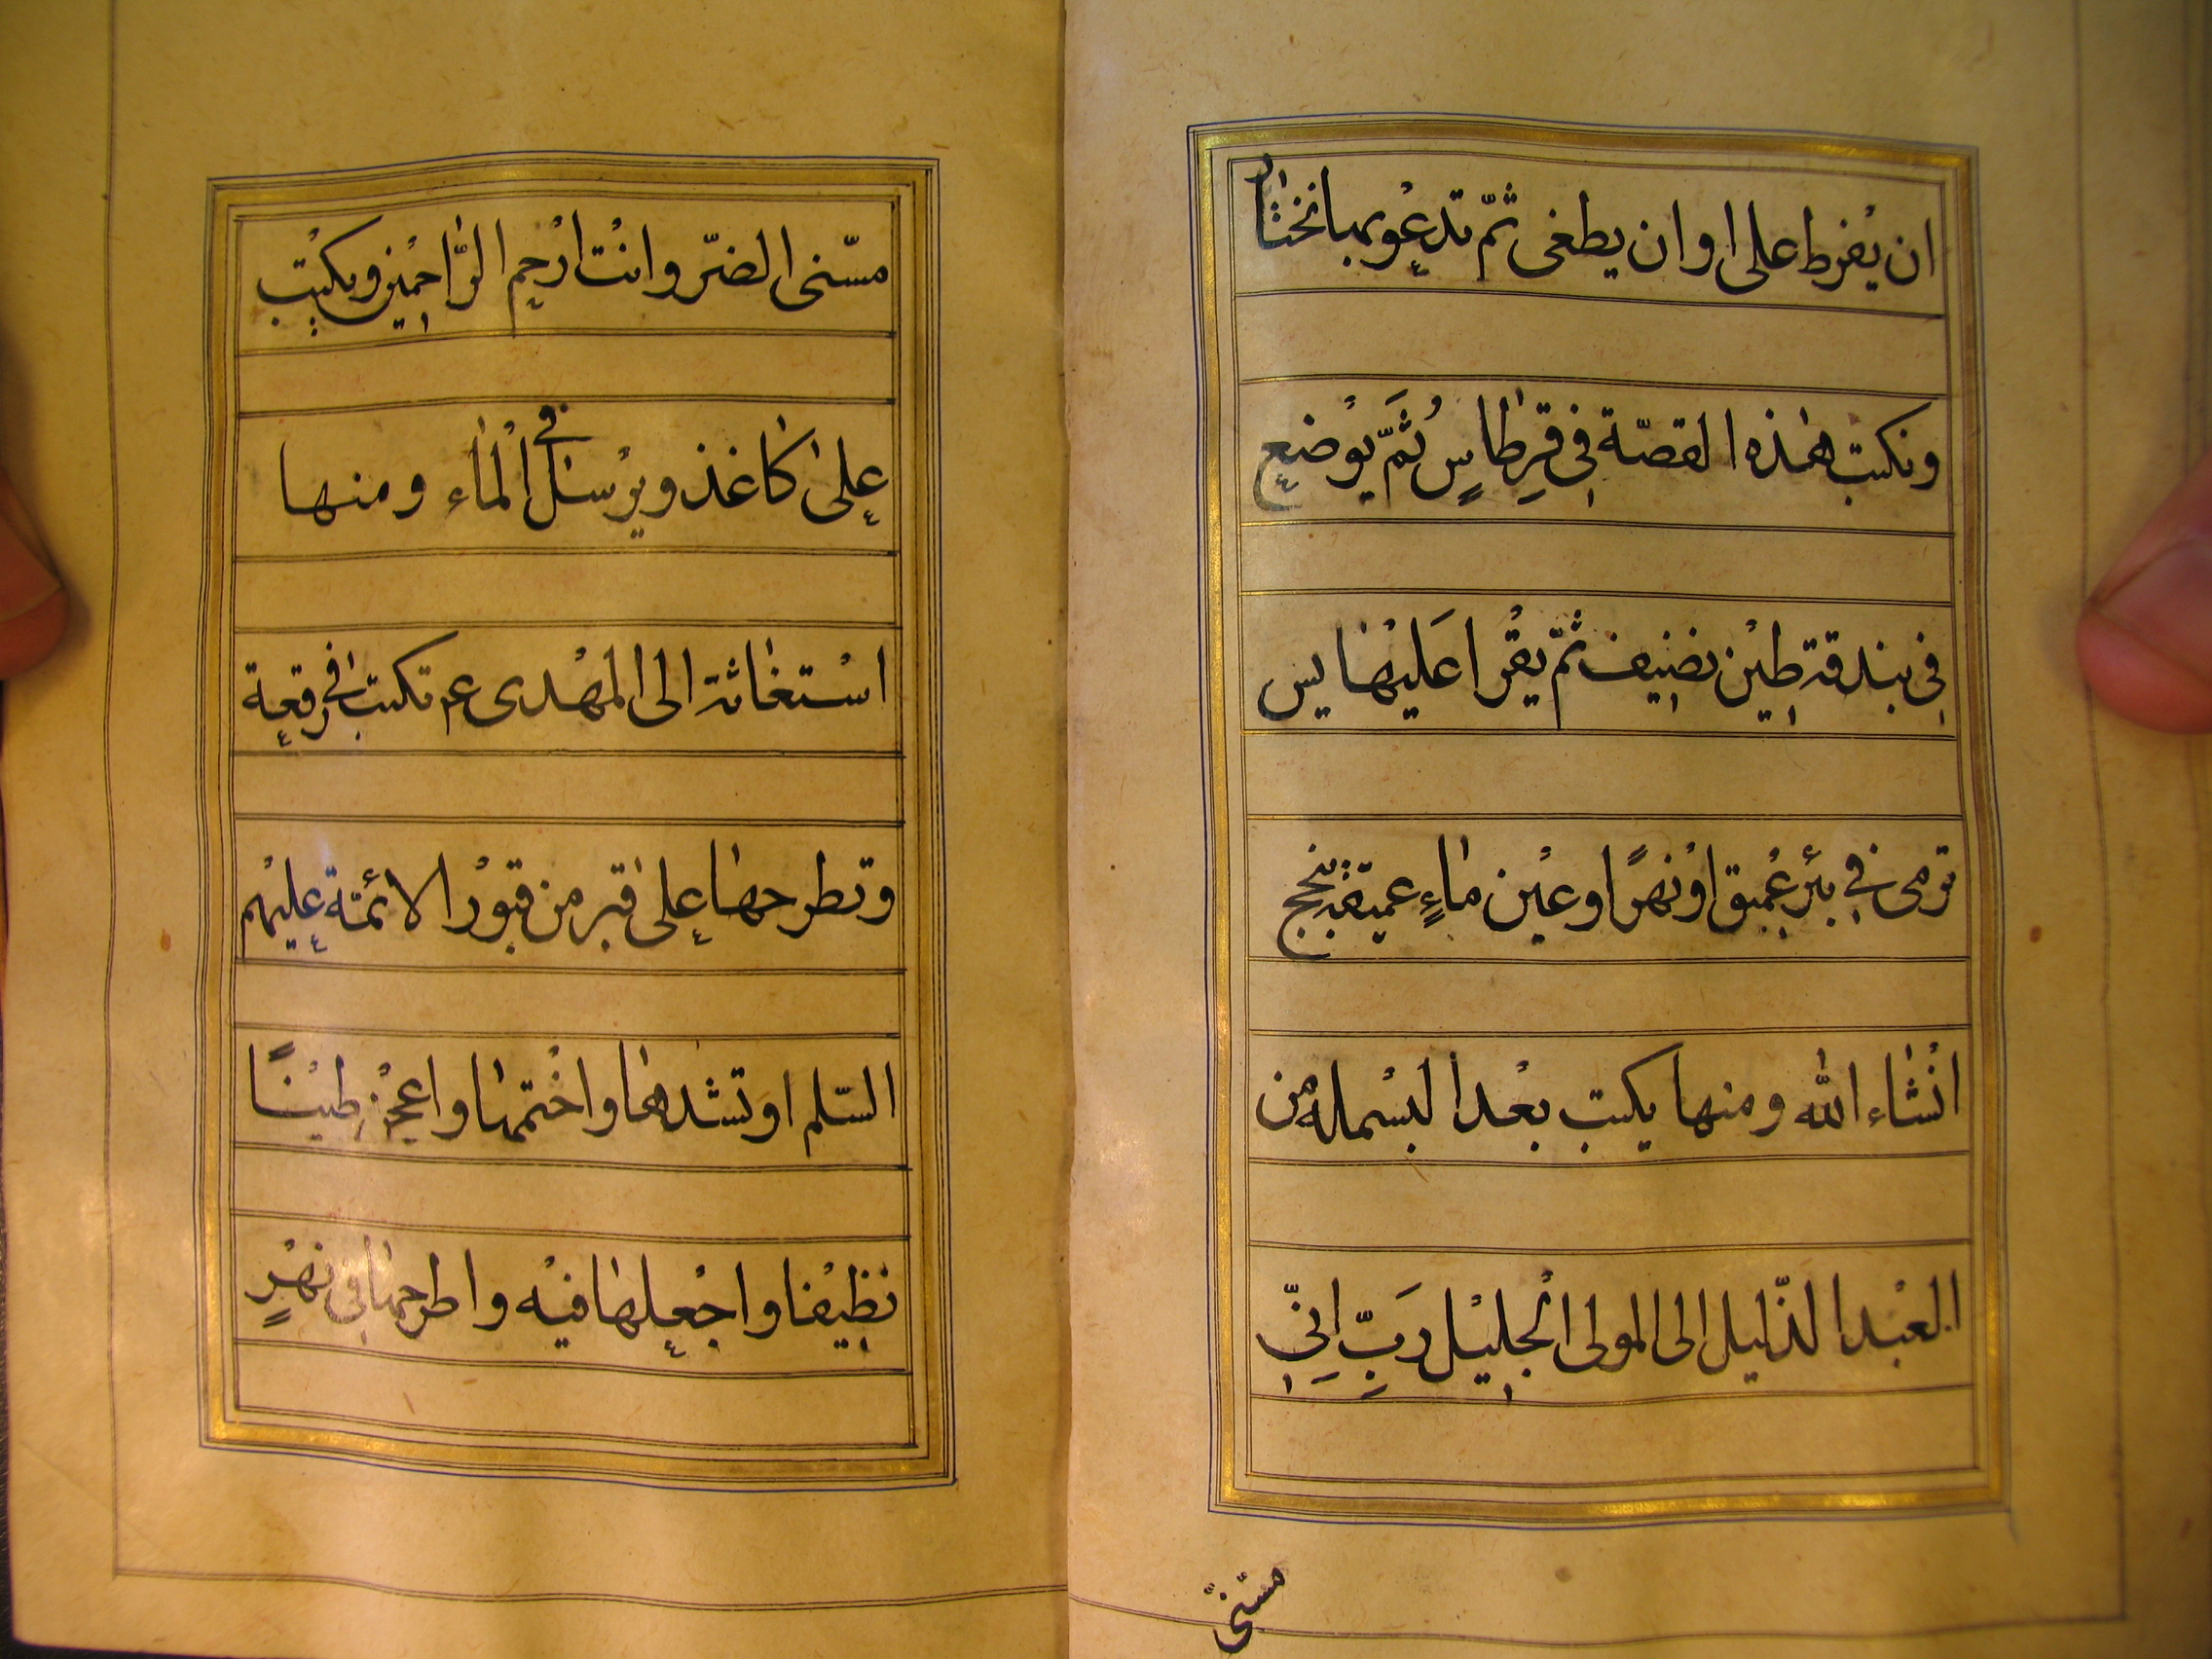 ان يُفرط على او ان يطغى ثمّ تدعْو بما تختار
ونكتب هذه القصّة فى قرطاسٍ ثُمَّ يوُضع
فى بندقة طِيْن نضيف ثمّ يقْرا عَليْها يس
ترمى فى بئر عميق اوْ نهرًا وعيْن ماءٍ عميقة ينجح
انْشاء الله ومنها يكتب بعْد البسْمله من
العبْد الذّليل الى المولى الْجليْل رَبِّ اِنّى
مسّنى
مسّنى الضرّ وانْت ارْحم الرّاحميْن ويكْتب
على كاغذ ويرْسل فى الْماء ومنها
اسْتغاثة الى المهْدى عم تكتب فى رقعة
وتطرحها على قبر من قبوْر الائمّة عليْهم
السّلم او تشدها واخْتمها واعجْن طيْنًا
نظيْفا واجْعلها فيْه واطرحها فى نهْرٍ